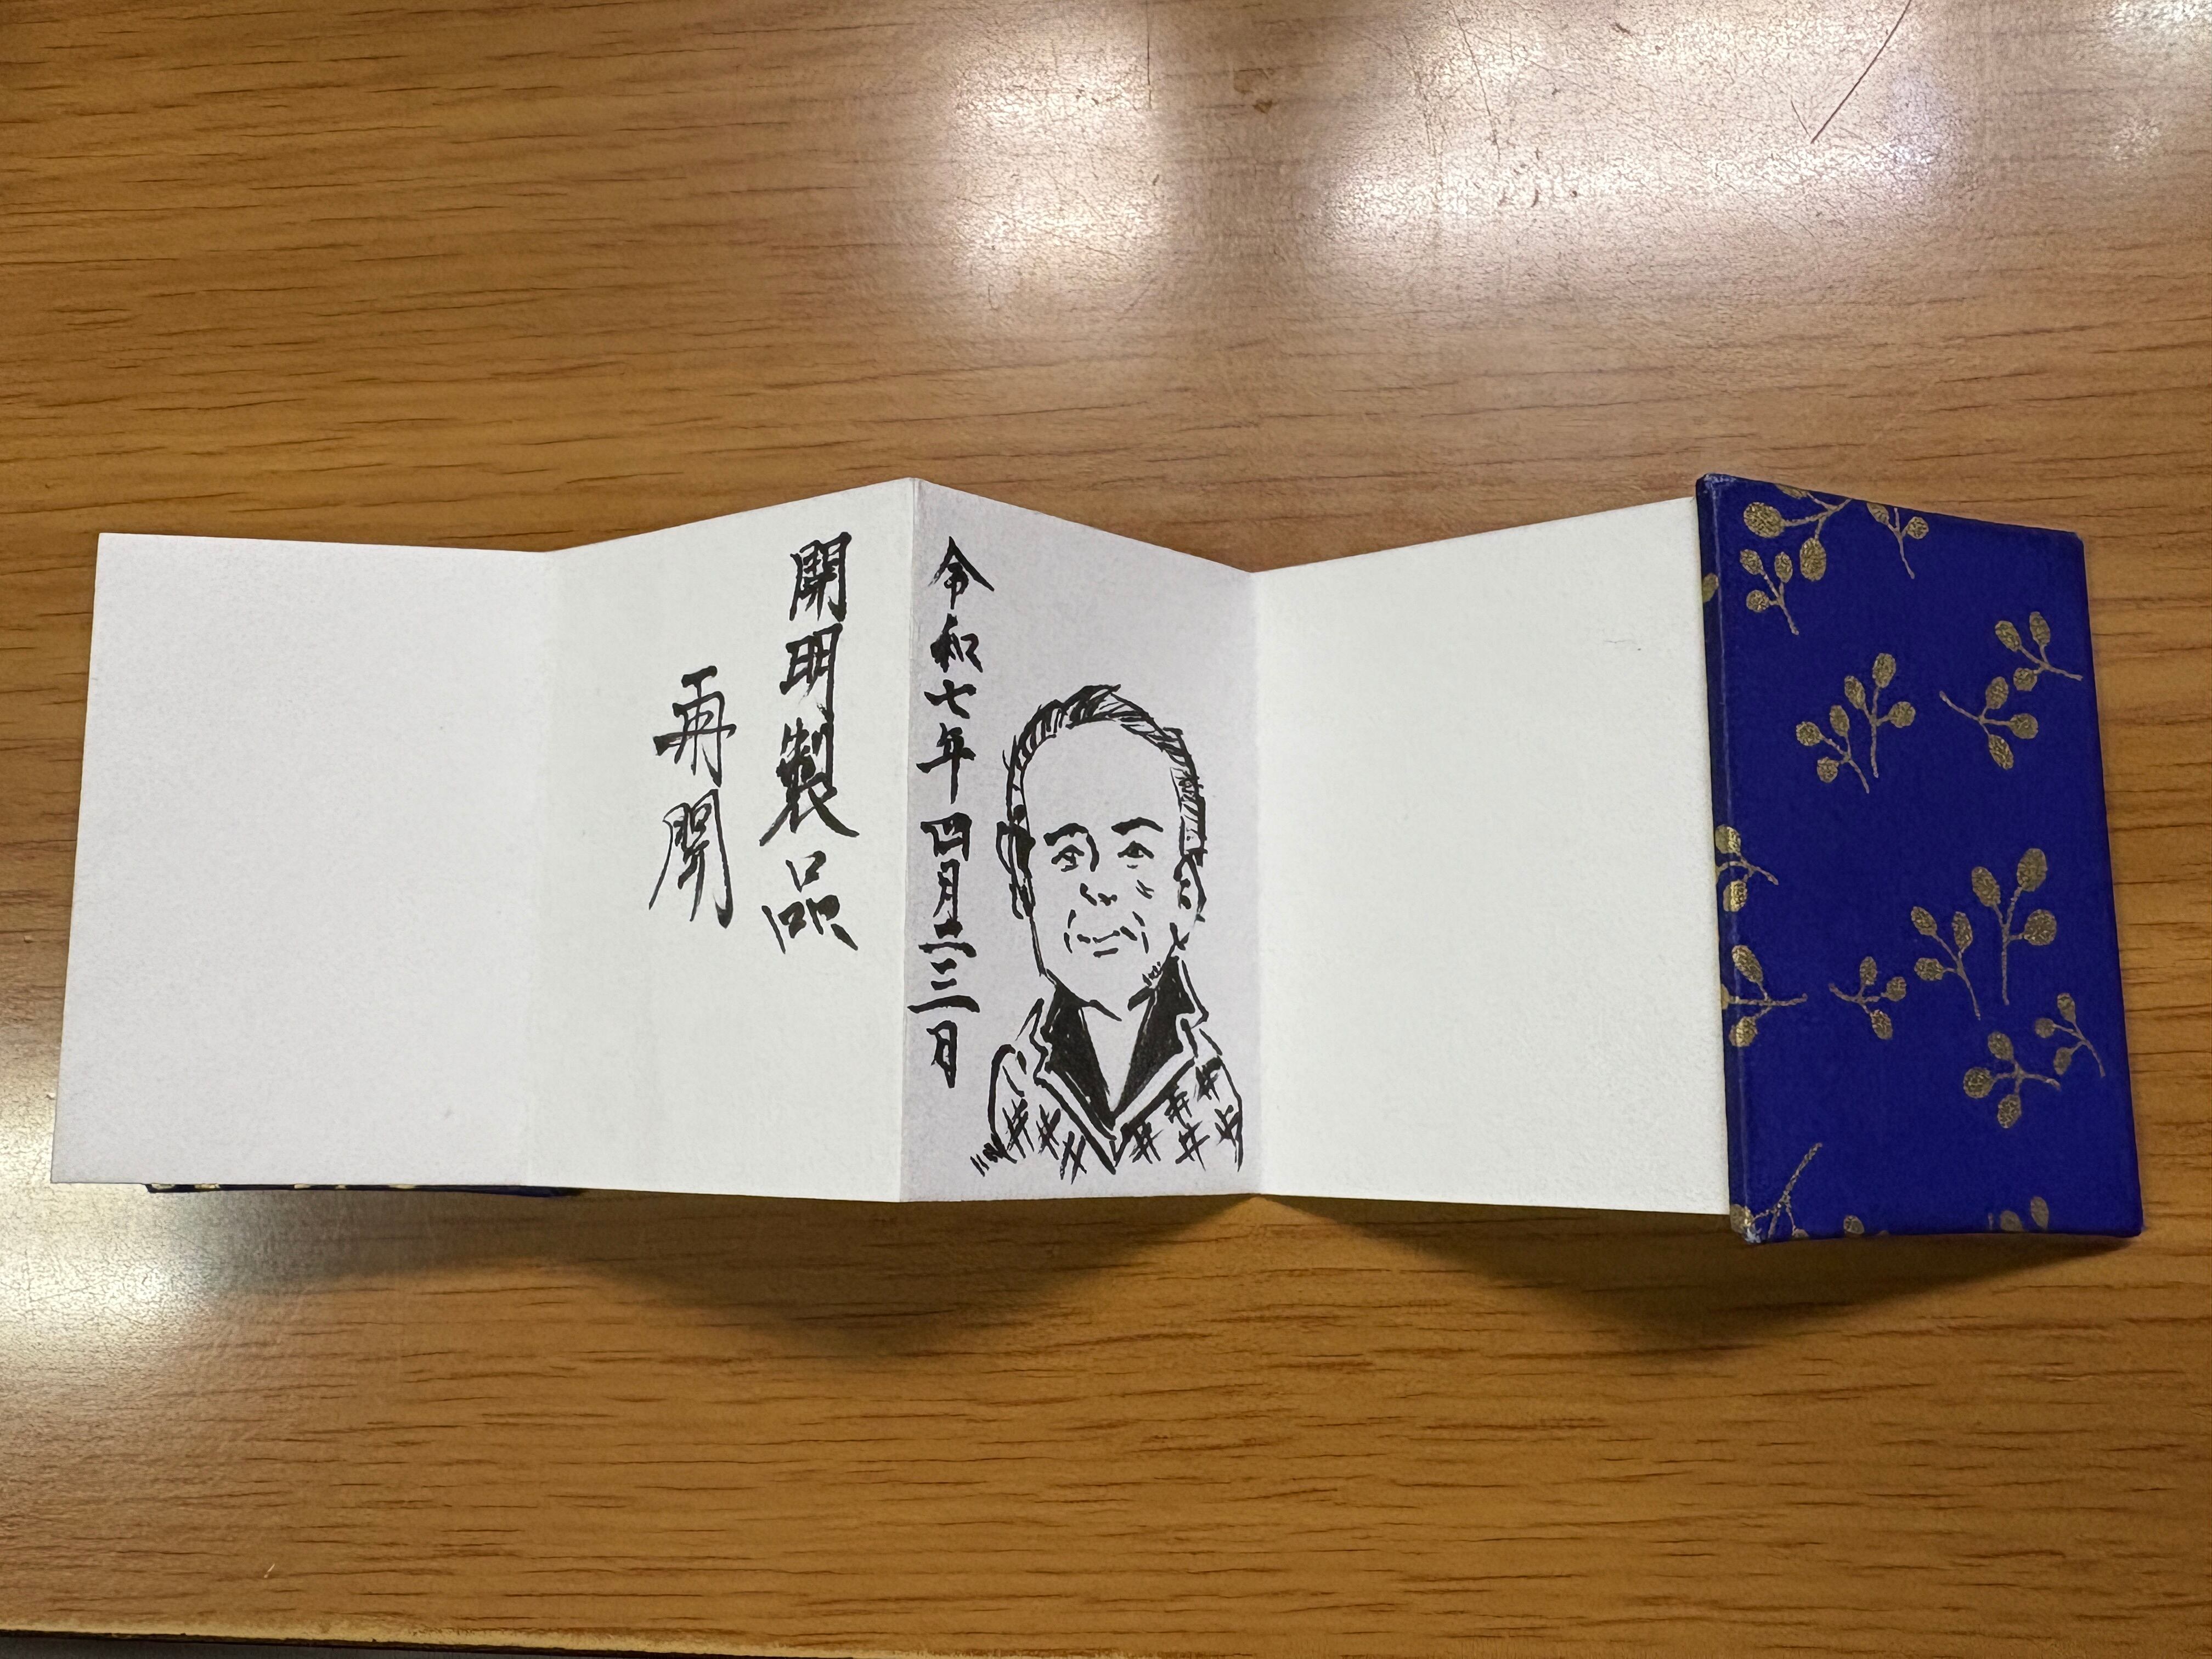 令和七年四月二三日
開明製品
再開